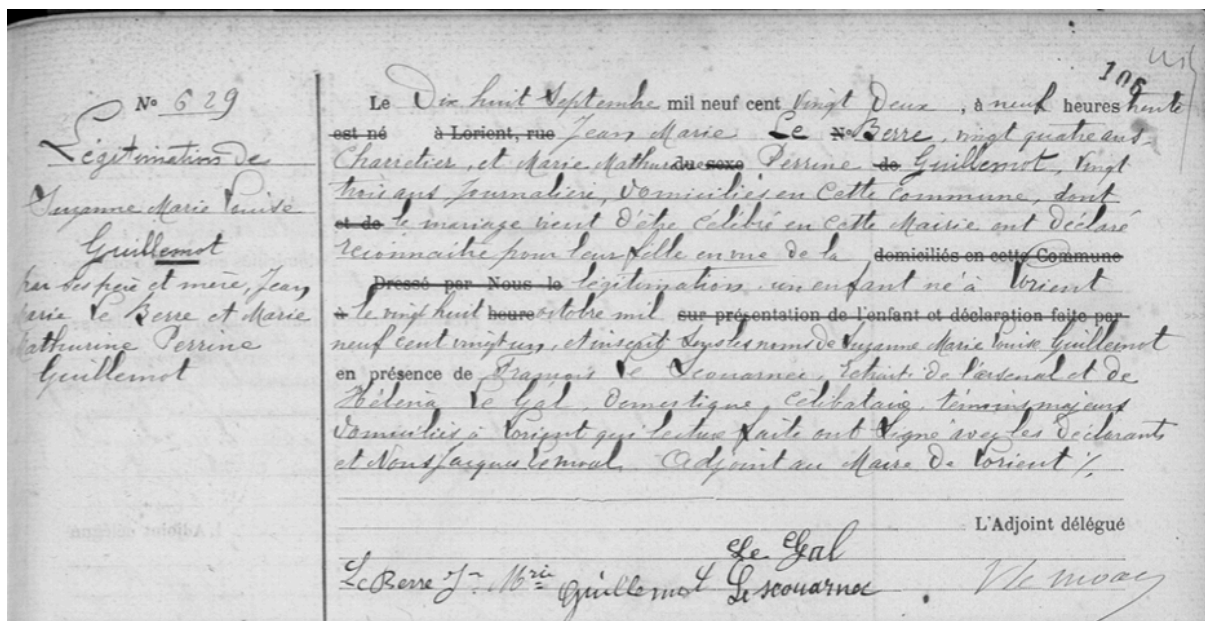 106
N° 629
Légitimation de
Suzanne Marie Louise
Guillemot
par ses père et mère, Jean
Marie Le Berre et Marie
Mathurine Perrine
Guillemot
Le Dix huit Septembre mil neuf cent vingt Deux, à neuf heures trente
est né à Lorient, rue Jean Marie Le N° Berre, vingt quatre ans
Charretier, et Marie Mathurine du sexe Perrine de Guillemot, vingt
trois ans Journalière, domiciliés en cette commune, dont
et de le mariage vient d'être célébré en cette Mairie ont déclaré
reconnaitre pour leur fille en vue de la domiciliés en cette Commune
Dressé par Nous le légitimation un enfant né à Lorient
à le vingt huit heure octobre mil sur présentation de l'enfant et déclaration faite par
neuf cent vingt un, et inscrit sous les noms de Suzanne Marie Louise Guillemot
en présence de François Le Scouarnec, retraité de l'arsenal et de
Hélèna Le Gal, domestique, célibataire, témoins majeurs
domiciliés à Lorient qui lecture faite ont signé avec les déclarants
et Nous Jacques Lemoal Adjoint au Maire de Lorient ./.
L'Adjoint délégué
Le Gal
Le Berre Jn Mrie Guillemot Le scouarnec